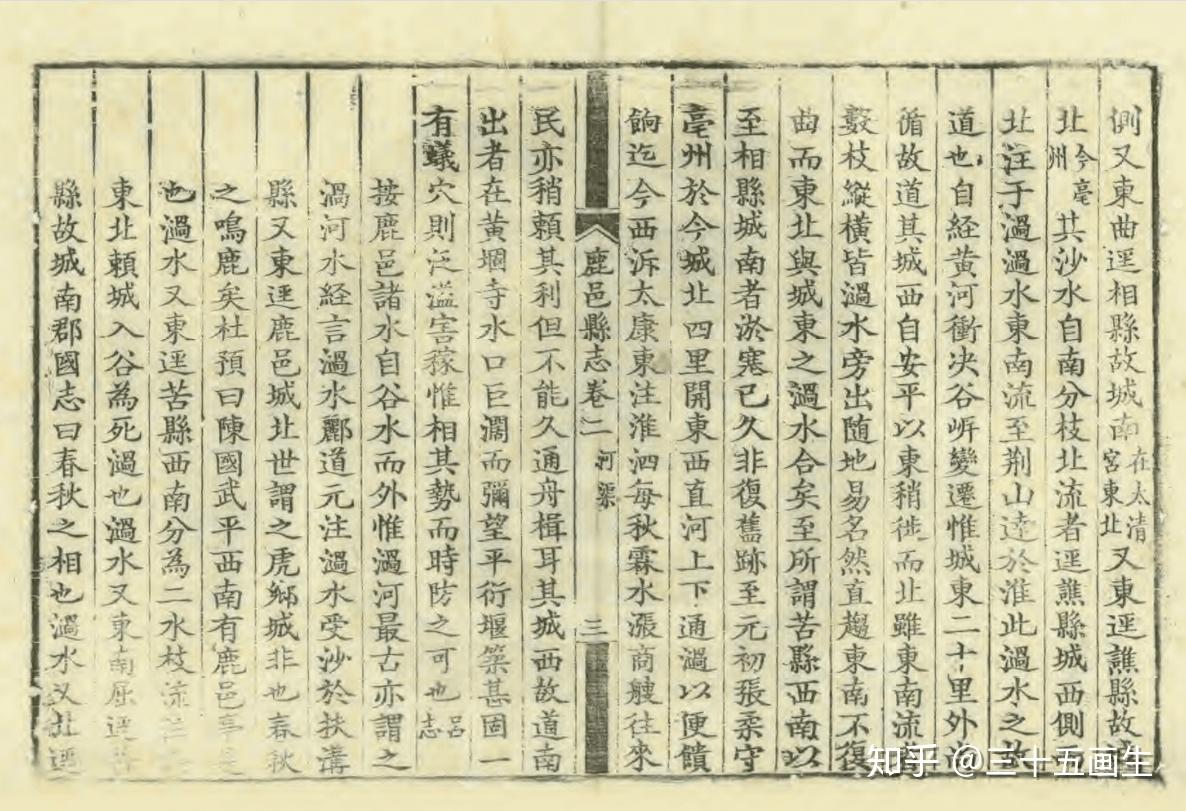 側又東曲逕相縣故城南在太清宮東北又東逕譙縣故
北今亳州其沙水自南分枝北流者逕譙縣城西側
北注于濄濄水東南流至荆山逹於淮此濄水之故
道也自經黄河衝决谷岍變遷惟城東二十里外
循故道其城西自安平以東稍徙而北雖東南流
數枝縱横皆濄水旁出随地易名然直趨東南不復
曲而東北與城東之濄水合矣至所謂苦縣西南以
至相縣城南者淤塞已久非復舊跡至元初張柔守
亳州於今城北四里開東西直河上下通濄以便饋
餉迄今西泝太康東注淮泗每秋霖水漲商艘往來
鹿邑縣志卷二 河渠 三
民亦稍頼其利但不能久通舟楫耳其城西故道南
出者在黄堌寺水口巨濶而彌望平衍堰築甚固一
有蟻穴則泛溢害稼惟相其勢而時防之可也呂志
按鹿邑諸水自谷水而外惟濄河最古亦謂之
渦河水経言濄水酈道元注濄水受沙於扶溝
縣又東逕鹿邑城北世謂之虎鄉城非也春秋
之鳴鹿矣杜預曰陳國武平西南有鹿邑亭是
也濄水又東逕苦縣西南分為二水枝流注
東北頼城入谷為死濄也濄水又東南屈逕苦
縣故城南郡國志曰春秋之相也濄水又北逕
知乎 @三十五画生